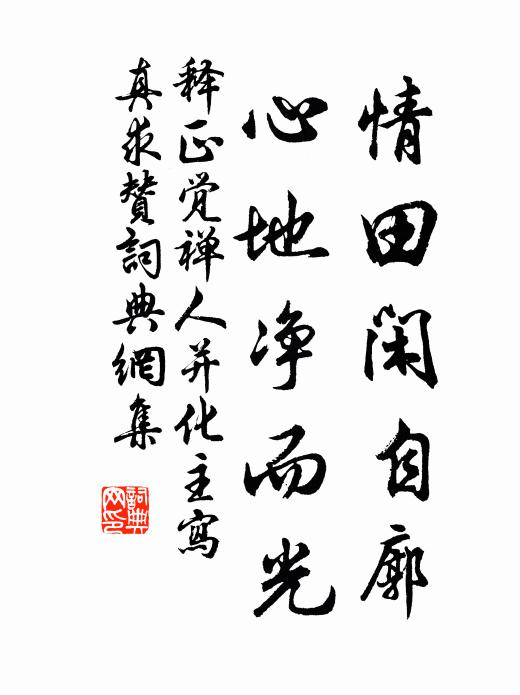 情田闲自廓
心地净而光
释正觉禅人并化主寫
真求贊詞典網集
詞典
网印